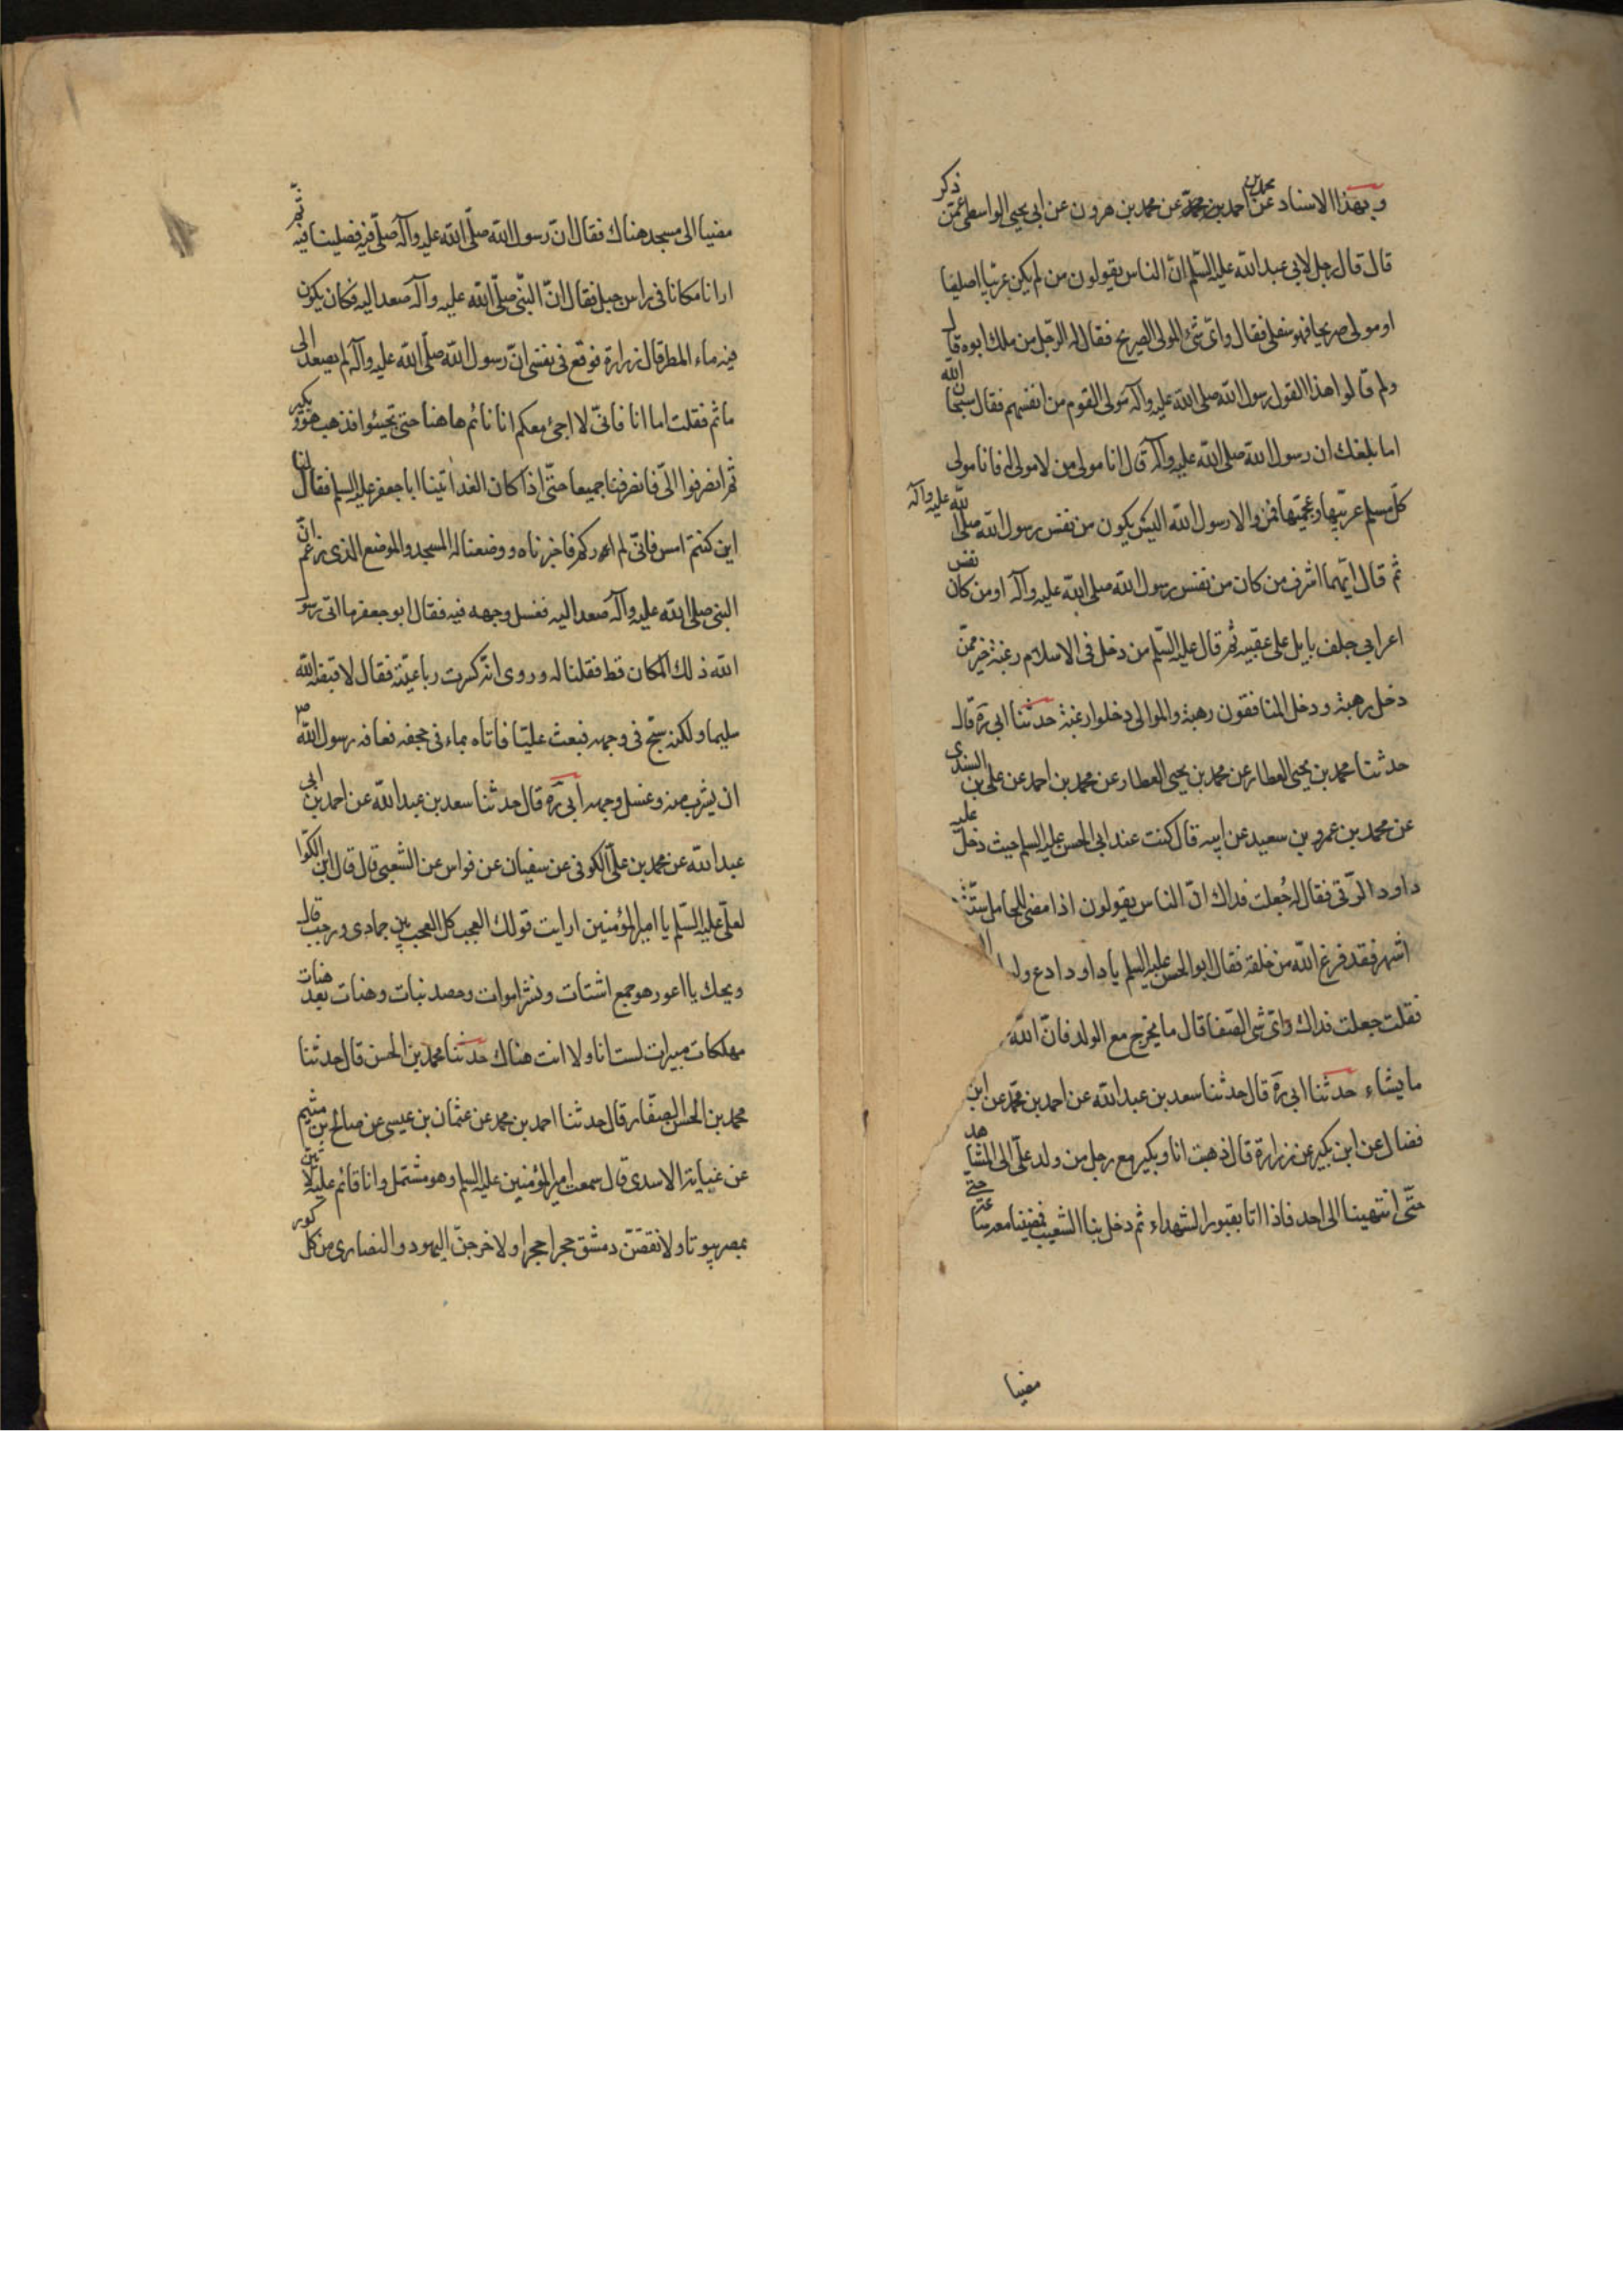 وبهذا الاسناد عن محمد بن احمد عن محمد بن هرون عن ابي يحيى الواسطي عمّن ذكر
قال قال رجل لابي عبدالله عليه السّلم انّ الناس يقولون من لم يكن عربيّا صليبا
او مولى صريحا فهو سفلي فقال وايّ شئ المولى الصريح فقال له الرّجل من ملك ابوه قال
ولم قالوا هذا القول لرسول الله صلى الله عليه وآله مولى القوم من انفسهم فقال سبحان الله
اما بلغك ان رسول الله صلى الله عليه وآله قال انا مولى من لا مولى له فانا مولى
كلّ مسلم عربيّها وعجميّها فمن والا رسول الله اليس يكون من نفس رسول الله صلى الله عليه وآله
ثم قال ايّهما اشرف من كان من نفس رسول الله صلى الله عليه وآله او من كان نفس
اعرابي جلف بايل على عقبيه ثم قال عليه السّلم من دخل في الاسلام رغبة خير ممّن
دخل رهبة ودخل المنافقون رهبة والموالي دخلوا رغبة حدثنا ابي ره قال
حدثنا محمد بن يحيى العطار عن محمد بن يحيى العطار عن محمد بن احمد عن علي بن السندي
عن محمد بن عمرو بن سعيد عن ابيه قال كنت عند ابي الحسن عليه السلم حيث دخل عليه
داود الرّقي فقال له جُعلت فداك انّ الناس يقولون اذا مضى للحامل ستّة
اشهر فقد فرغ الله من خلقه فقال ابو الحسن عليه السلم يا داود ادع ولو
فقلت جعلت فداك وايّ شئ الصّفا قال ما يخرج مع الولد فانّ الله
ما يشاء حدثنا ابي ره قال حدثنا سعد بن عبدالله عن احمد بن محمّد عن ابن
فضال عن ابن بكير عن زرارة قال ذهبت انا وبكير مع رجل من ولد علّي الى المشاهد
حتّى انتهينا الى احد فاذا اتا بقبور الشهداء ثم دخل بنا الشعب فمضينا معه ساعة حتى
مضينا
مضينا الى مسجد هناك فقال انّ رسول الله صلّى الله عليه وآله صلّى فيه فصلينا فيه ثمّ
ارانا مكانا في راس جبل فقال انّ النبّي صلّى الله عليه وآله صعد اليه فكان يكون
فيه ماء المطر قال زرارة فوقع في نفسي انّ رسول الله صلّى الله عليه وآله لم يصعد الى
ما ثم فقلت اما انا فانّي لا اجئ معكم انا نائم هاهنا حتى تجيئوا فذهب هو وبكير
ثم انصرفوا الّي فانصرفنا جميعا حتّى اذا كان الغد اتينا ابا جعفر عليه السلم فقال لنا
اين كنتم امس فانّي لم اركم فاخبرناه ووصفنا له المسجد والموضع الذي زعم انّ
النبي صلى الله عليه وآله صعد اليه فغسل وجهه فيه فقال ابو جعفر ما اتى رسول
الله ذلك المكان قط فقلنا له وروى انّه كسرت رباعيّته فقال لا قبضه الله
سليما ولكنه شجّ في وجهه فبعث عليّا فاتاه بماء في حجفه فعافه رسول الله ص
ان يشرب منه وغسل وجهه ابي ره قال حدثنا سعد بن عبدالله عن احمد بن ابي
عبدالله عن محمد بن علّي الكوفي عن سفيان عن فراس عن الشعبي قال قال ابن الكوّا
لعلّي عليه السّلم يا امير المؤمنين ارايت قولك العجب كل العجب بين جمادى ورجب قال
ويحك يا اعور هو جمع اشتات ونشر اموات وحصد نبات وهنات بعد هنات
مهلكات مبيرات لست انا ولا انت هناك حدثنا محمد بن الحسن قال حدثنا
محمد بن الحسن الصفّار قال حدثنا احمد بن محمد عن عثمان بن عيسى عن صالح بن ميثم
عن عباية الاسدي قال سمعت امير المؤمنين عليه السلم وهو مشتمل وانا قائم عليه لابنين
بمصر بيوتا ولانقضّن دمشق حجرا حجرا ولاخرجنّ اليهود والنصارى من كل كور